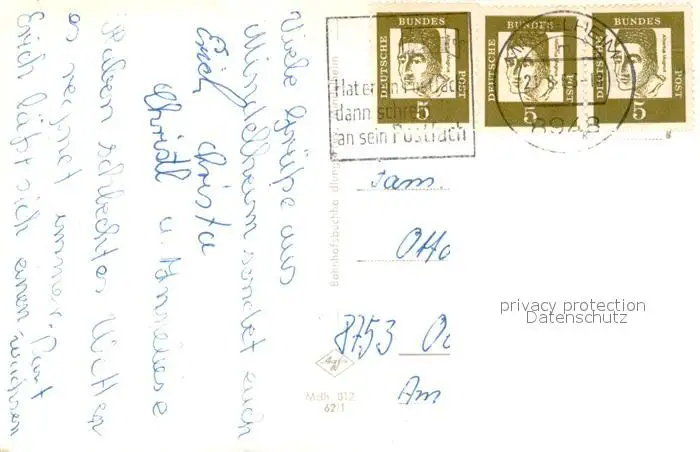 DEUTSCHE BUNDES POST 5
DEUTSCHE BUNDES POST 5
DEUTSCHE BUNDES POST 5
Hat er ein Postfach
dann schreib
an sein Postfach
8948
Viele Grüße aus
Mindelheim sendet euch
Erich Christa
Christl u. Anneliese
Haben schlechtes Wetter
es regnet immer.
Erich läßt sich einen
Bahnhofsbuchhandlung
Fam.
Otto
8753
Am
Mdh 812
62/1
privacy protection
Datenschutz